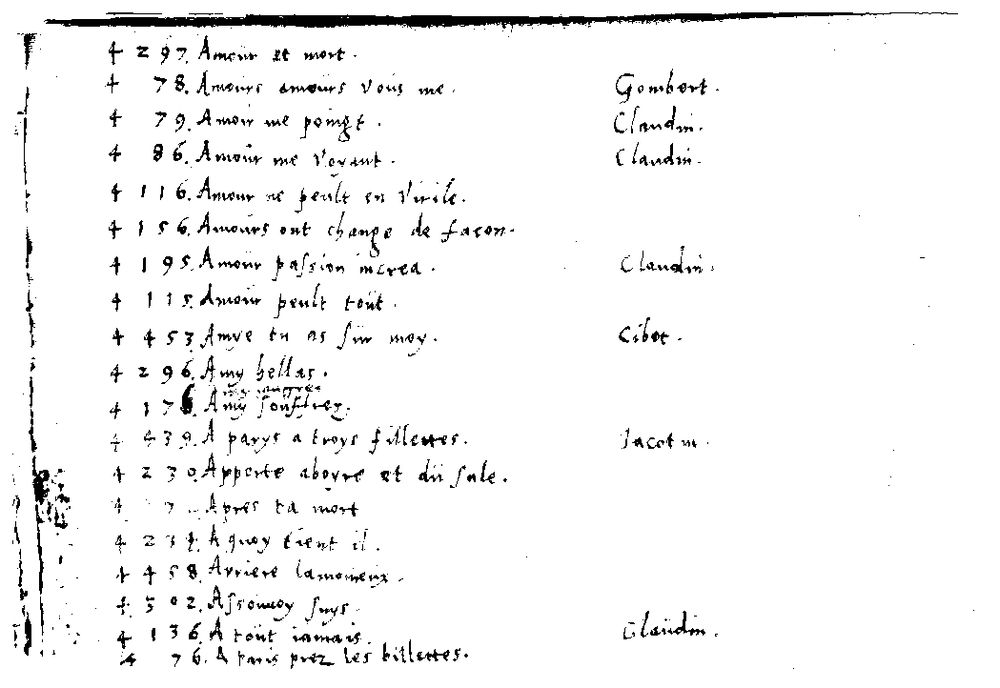 4 297. Amour et mort.
4 78. Amours amours vous me. Gombert.
4 79. Amour me poingt. Claudin.
4 86. Amour me voyant. Claudin.
4 116. Amour ne peult en virile.
4 156. Amours ont change de façon.
4 195. Amour passion increa. Claudin.
4 115. Amour peult tout.
4 453 Amye tu as sur moy. Cibot.
4 296. Amy hellas.
4 176 Amy souffrez.
4 439. A parys a troys fillettes. Jacotin.
4 230. Apporte aboyre et du sale.
4 7 . Apres ta mort
4 234. A quoy tient il.
4 458. Arriere
4 502. suys.
4 136. A tout iamais. Claudin.
4 76. A paris prez les billettes.